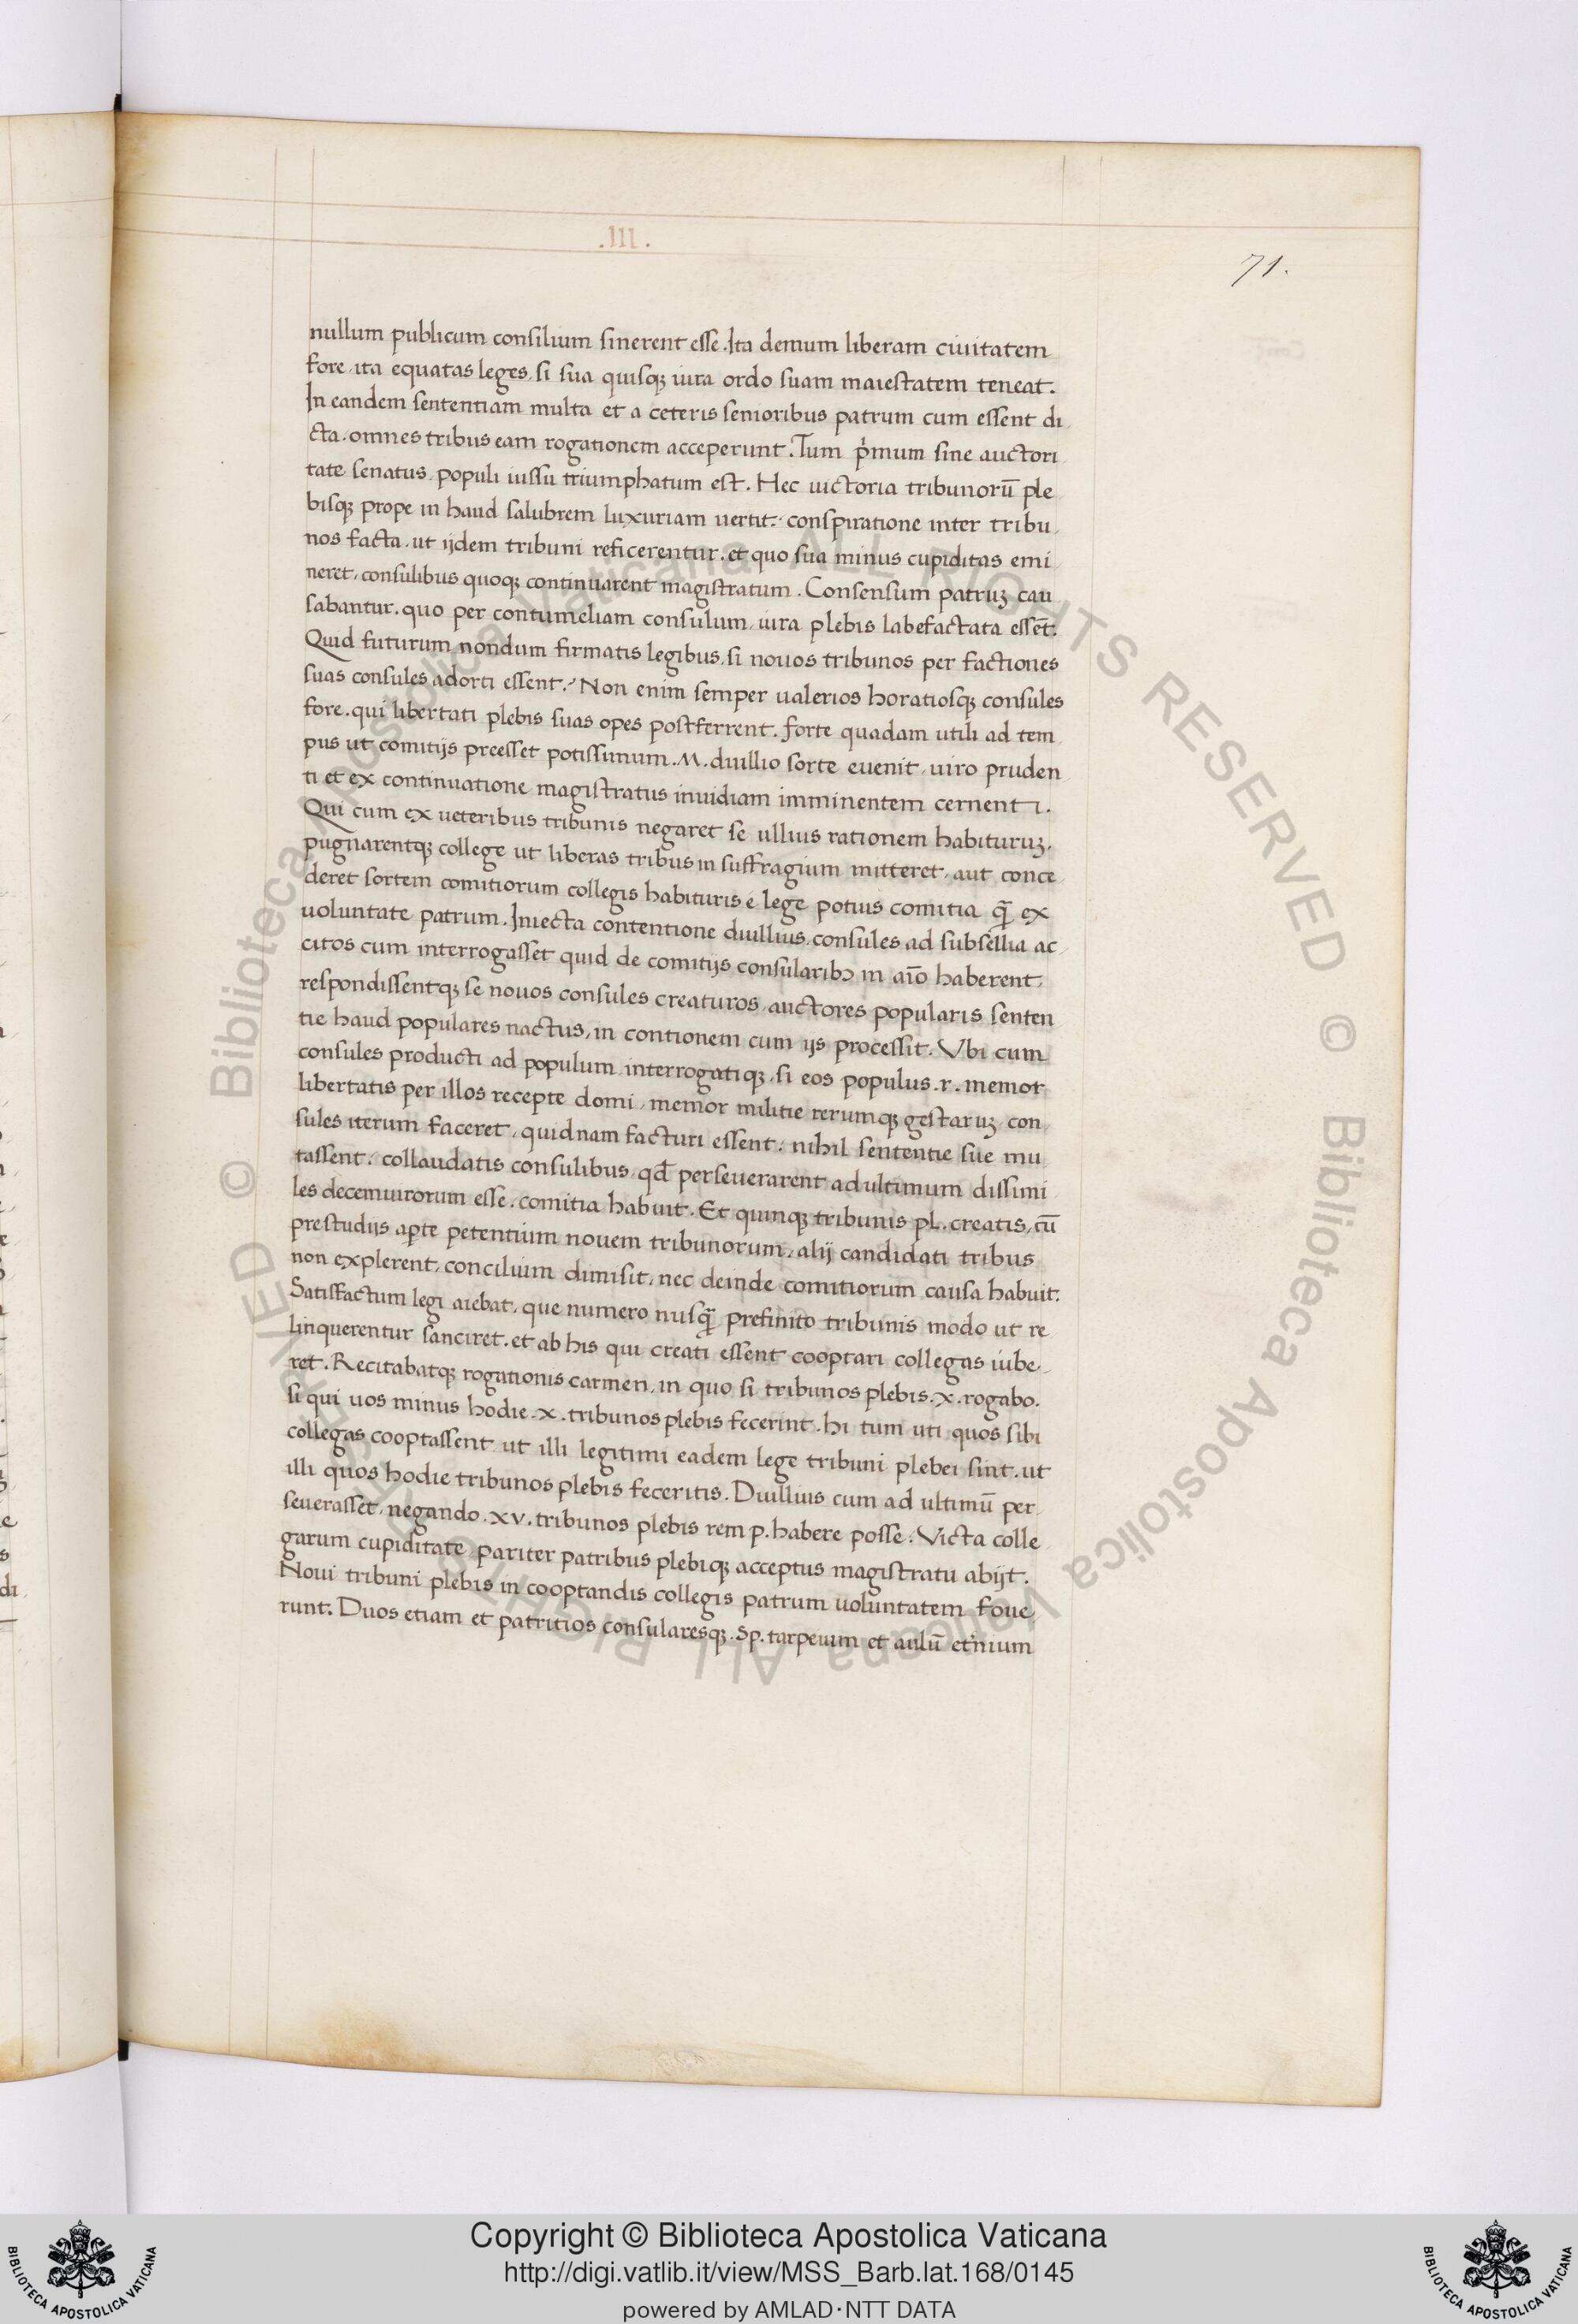 .III.
71.
nullum publicum consilium sinerent esse. Ita demum liberam ciuitatem
fore, ita equatas leges, si sua quisqꝫ iura ordo suam maiestatem teneat.
In eandem sententiam multa et a ceteris senioribus patrum cum essent di
cta. omnes tribus eam rogationem acceperunt. Tum pͥmum sine auctori
tate senatus, populi iussu triumphatum est. Hec uictoria tribunorū ple
bisqꝫ prope in haud salubrem luxuriam uertit. conspiratione inter tribu
nos facta. ut ijdem tribuni reficerentur. et quo sua minus cupiditas emi
neret, consulibus quoqꝫ continuarent magistratum. Consensum patruꝫ cau
sabantur. quo per contumeliam consulum, iura plebis labefactata essēt.
Quid futurum nondum firmatis legibus, si nouos tribunos per factiones
suas consules adorti essent? Non enim semper ualerios horatiosqꝫ consules
fore. qui libertati plebis suas opes postferrent. forte quadam utili ad tem
pus ut comitijs preesset potissimum. M. duillio sorte euenit, uiro pruden
ti et ex continuatione magistratus inuidiam imminentem cernenti.
Qui cum ex ueteribus tribunis negaret se ullius rationem habituruꝫ.
pugnarentqꝫ college ut liberas tribus in suffragium mitteret, aut conce
deret sortem comitiorum collegis habituris e lege potius comitia q̄ ex
uoluntate patrum. Iniecta contentione duillius, consules ad subsellia ac
citos cum interrogasset quid de comitijs consularibꝫ in aīo haberent.
respondissentqꝫ se nouos consules creaturos, auctores popularis senten
tie haud populares nactus, in contionem cum ijs processit. Vbi cum
consules producti ad populum interrogatiqꝫ, si eos populus .r. memor
libertatis per illos recepte domi, memor militie rerumqꝫ gestaruꝫ, con
sules iterum faceret, quidnam facturi essent. nihil sententie sue mu
tassent. collaudatis consulibus, qđ perseuerarent ad ultimum dissimi
les decemuirorum esse. comitia habuit. Et quinqꝫ tribunis pl. creatis, cū
prestudijs aꝑte petentium nouem tribunorum, alij candidati tribus
non explerent, concilium dimisit, nec deinde comitiorum causa habuit.
Satisfactum legi aiebat, que numero nusq̄ prefinito tribunis modo ut re
linquerentur sanciret. et ab his qui creati essent cooptari collegas iube
ret. Recitabatqꝫ rogationis carmen, in quo si tribunos plebis .x. rogabo.
si qui uos minus hodie .x. tribunos plebis fecerint. hi tum uti quos sibi
collegas cooptassent ut illi legitimi eadem lege tribuni plebei sint. ut
illi quos hodie tribunos plebis feceritis. Duillius cum ad ultimū per
seuerasset, negando .xv. tribunos plebis rem p. habere posse. Victa colle
garum cupiditate pariter patribus plebiqꝫ acceptus magistratu abijt.
Noui tribuni plebis in cooptandis collegis patrum uoluntatem foue
runt. Duos etiam et patritios consularesqꝫ. Sp. tarpeium et aulū eternium
© Biblioteca Apostolica Vaticana ALL RIGHTS RESERVED © Biblioteca Apostolica Vaticana ALL RIGHTS RESERVED
Copyright © Biblioteca Apostolica Vaticana
http://digi.vatlib.it/view/MSS_Barb.lat.168/0145
powered by AMLAD·NTT DATA
BIBLIOTECA APOSTOLICA VATICANA
BIBLIOTECA APOSTOLICA VATICANA